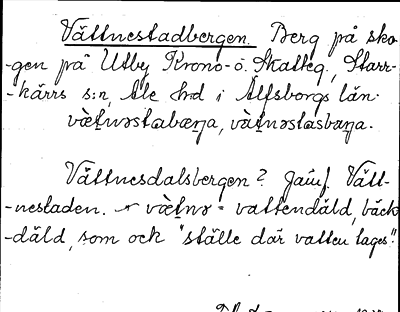 Vättnestadbergen. Berg på sko-
-gen på Utby Krono- o. Skatteg, Starr-
-kärrs s:n, Ale h:d i Älfsborgs län.
vætnəstabærja, vætnəstasbarja.
Vättnesdalsbergen? Jämf. Vätt-
-nestaden. vætnə = vattendäld, bäck-
-däld, som ock "ställe där vatten tages".